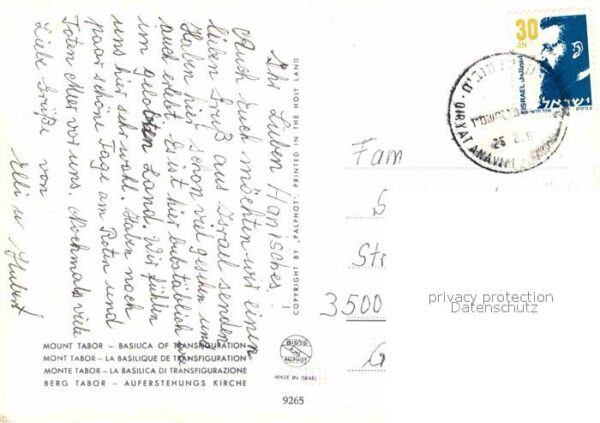 Ihr Lieben Hanisches!
Auch Euch möchten wir einen
lieben Gruß aus Israel senden.
Haben hier schon viel gesehen und
auch erlebt. Es ist hier buchstäblich
im gelobten Land. Wir fühlen
uns hier sehr wohl. Haben noch
paar schöne Tage am Roten und
Toten Meer vor uns. Nochmals viele
Liebe Grüße von
Elli u Hubert
COPYRIGHT BY "PALPHOT" · PRINTED IN THE HOLY LAND
MOUNT TABOR – BASILICA OF TRANSFIGURATION
MONT TABOR – LA BASILIQUE DE TRANSFIGURATION
MONTE TABOR – LA BASILICA DI TRANSFIGURAZIONE
BERG TABOR – AUFERSTEHUNGS KIRCHE
PALPHOT
MADE IN ISRAEL
9265
30
ISRAEL
ישראל
QIRYAT ANAVIM
Fam
S
Str
3500
G
privacy protection
Datenschutz